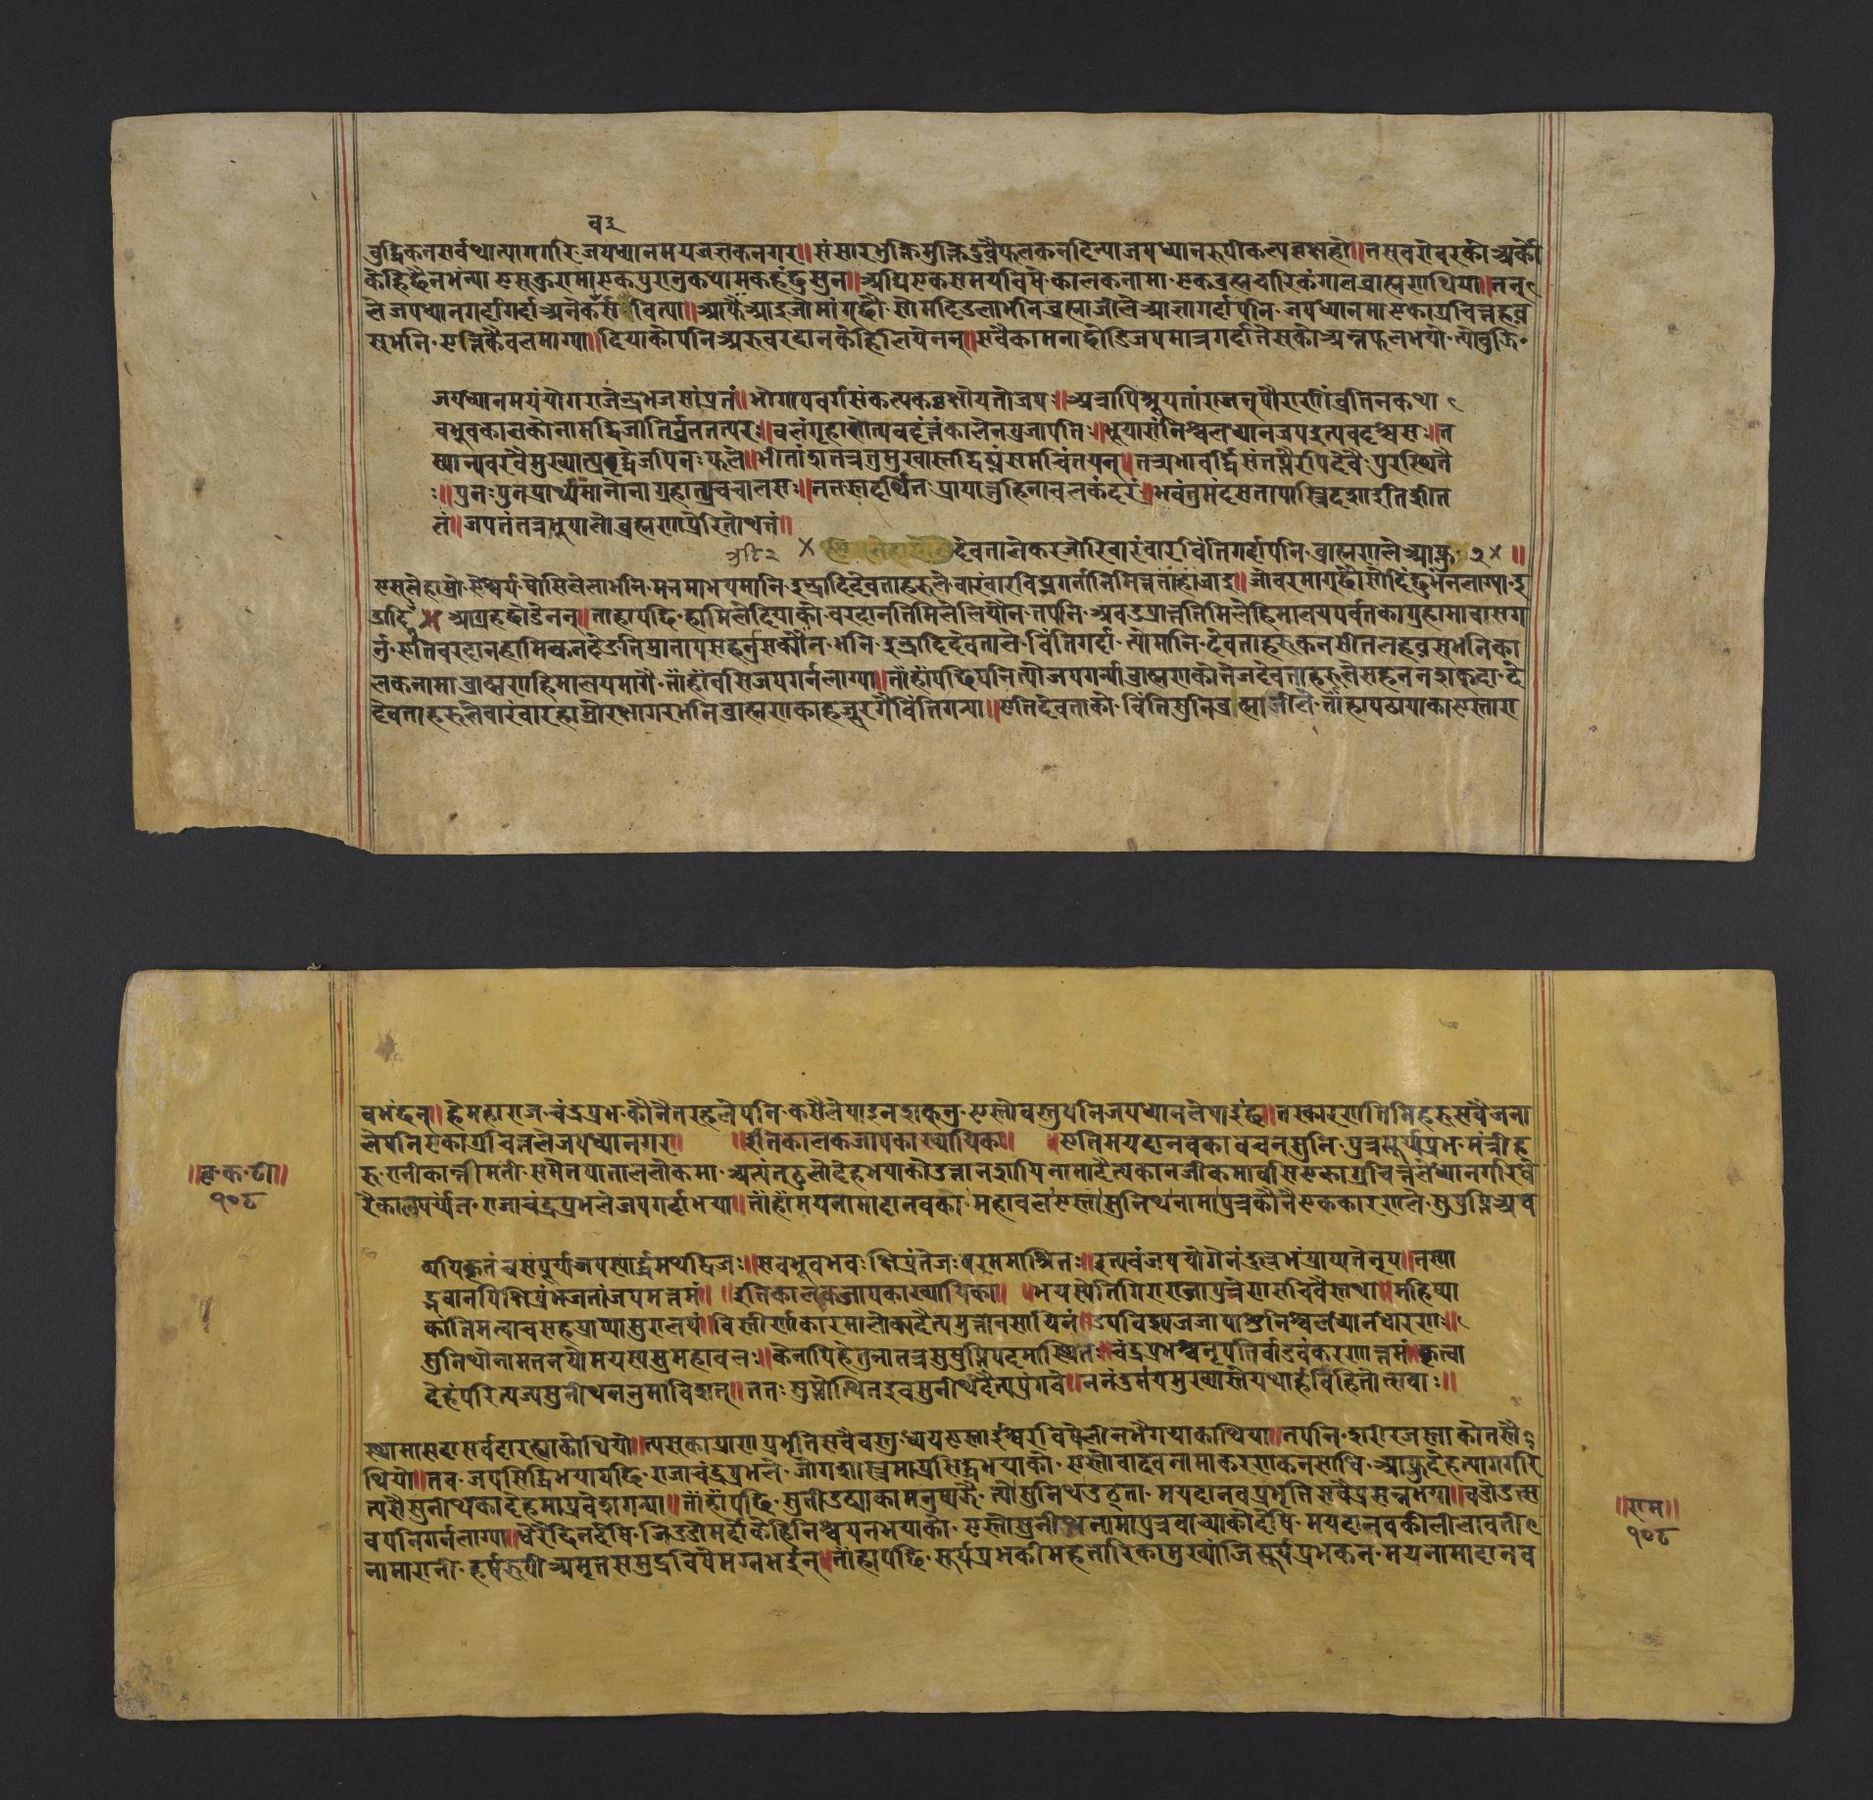 व ३
बुद्धिकन सर्वथा त्याग गरि जपध्यानमय जज्ञकन गर॥ संसारभुक्तिमुक्ति दुवै फलकन दिन्या जपध्यानरूपी कल्पवृक्ष हो॥ तस बरोबरको अर्को
केहि छैन भंन्या एस कुरामा एक पुरानु कथा म कहंछु सुन॥ अघि एक समयविषे कालकनामा एक ब्रह्मचारि कंगाल ब्राह्मण थिया॥ तन्
ले जपध्यान गर्दा गर्दा अनेक वर्ष वित्या॥ आफै आइ जो मागछौ सो म दिउला भनि ब्रह्माजीले आज्ञा गर्दा पनि जपध्यानमा एकाग्रचित्त हवस्
स भनि एत्ति केवल माग्या॥ दियाको पनि अरु वरदान केहि लियेनन्॥ सवै कामना छोडि जपमात्र गर्दा तेसको अन्त फल भयो त्यो बुझि
जपध्यानमयं योगराजेन्द्र भज सांप्रतं॥ भोगापवर्गसंकल्पकल्पवृक्षो यतो जपः॥ अत्रापि श्रूयतां राजन् पौराणीं व्रतिनः कथा
बभूव कालको नाम द्विजातिर्व्रततत्परः॥ वलं गृहाणेत्यवदत्तं कालेन प्रजापतिः॥ भूयासं निश्चलध्यानजप इत्यवदच्च सः॥ त
स्यान्यवरवैमुख्यात्प्रवृद्धे जपिनः फले॥ भीतां शतक्रतुमुखास्तद्विघ्नं समचिंतयन्॥ तत्प्रभावर्द्धि संतप्तैरपि देवैः पुरस्थितै
ः॥ पुनः पुनः प्रार्थ्यमानो नाग्रहात्प्रचचाल सः॥ ततस्तदर्थितः प्रायात्तुहिनाचलकंदरं॥ भवंतु मंदसंतापास्त्रिदशा इति शीत
लं॥ जपंतं तत्र भूपालो ब्रह्मणा प्रेरितोथ तं॥
त्रुटि २ × देवताले कर जोरि वारंवार विंति गर्दा पनि ब्राह्मणले आफ्नु २ × ॥
एसले हाम्रो ऐश्वर्य षोसिलेला भनि मनमा भय मानि इन्द्रादि देवताहरूले वारंवार विघ्न गर्ना निमित्त ताहां जाइ॥ जो वर मागछौ सो दिंछु भन लाग्या इ
द्रादि × आग्रह छोडेनन्॥ ताहा पछि हामिले दियाको वरदान तिमिले लियौन तपनि अव उप्रान्त तिमिले हिमालयपर्वतका गुहामा वास ग
र्नु एति वरदान हामिकन देउ नि मानापस हुनु सक्यौन भनि इन्द्रादि देवताले विंति गर्दा त्यो मानि देवताहरूकन शीतल हवस् भनि का
लकनामा ब्राह्मण हिमालयमा गै ताँहाँ वसि जप गर्न लाग्या॥ ताँहाँ पछि पनि त्यो जप गर्न्या ब्राह्मणको तेज देवताहरूले सहन नशकुदा दे
देवताहरूले वारंवार हाम्रो रक्षा गर भनि ब्राह्मणका हजुर गै विंति गन्या॥ एति देवताको विंति सुनि ब्रह्माजीले ताँहा पठायाका एस्ता रा
वभंछन्॥ हे महाराज चंद्रप्रभ कौनै तरहले पनि कसैले पाउन शकुनु एस्तो वस्तु पनि जपध्यानले पाइंछ॥ तस्कारण तिमिहरु सवै जना
ले पनि एकाग्रचित्तले जपध्यान गर॥ ॥इति कालकजापकाख्यायिका॥ ॥एति मयदानवका वचन सुनि पुत्र सूर्यप्रभ मंत्रीह
रु रानी कान्तीमती समेत पातालोकमा अत्यंत ठुलो देह भयाको उत्तान शायि नामा दैत्यका नजीकमा वसि एकाग्रचित्तले ध्यान गरि धे
रै कालपर्य्यंत राजा चंद्रप्रभले जप गर्दा भया॥ ताँहाँ मय नामा दानवको महावल एस्ता सुनिथ नामा पुत्र कौनै एक कारणले सुषुप्ति अव
॥बृ.क.टी॥
१०८
अपि कृतं च संपूर्य जपस्यार्द्धमथ द्विजः॥ स वभूव भवः क्षिप्रं तेजः परममाश्रितः॥ इत्येवं जपयोगेन दुर्लभं प्राप्यते नृप॥ तस्मा
द्भवानपि क्षिप्रं भजतां जपमुत्तमं॥ ॥इति कालकजापकाख्यायिका॥ ॥मयस्येति गिरा राजा पुत्रेण सचिवैस्तथा॥ महिष्या
कांतिमत्या च सह प्राप्यासुरालयं॥ विस्तीर्णाकारमालोक्य दैत्यमुत्तानसायिनं॥ उपविश्य जजापाशु निश्चलध्यानधारणः॥
सुनिथो नाम तनयो मयस्य सुमहावलः॥ केनापि हेतुना तत्र सुषुप्तिपदमास्थितः॥ चंद्रप्रभश्च नृपतिर्वाडवंकरणोत्तमं॥ कृत्वा
देहं परित्यज्य सुनीथतनुमाविशत्॥ ततः सुप्तोत्थित इव सुनीथे दैत्यपुंगवे॥ ननंदुर्मयमुख्यास्ते यथार्हविहितोत्सवाः॥
स्थामा सदा सर्वदा रह्याको थियो॥ त्यसका प्राणप्रभृति सवै वस्तु ध्येय एस्ता ईश्वरविषे लीन भै गयाका थिया॥ तपनि शरीर जस्ताको तस्तै
थियो॥ तव जपसिद्धि भया पछि राजा चंद्रप्रभले जोगशास्त्रमा प्रसिद्ध भयाको एस्तो वाडव नामा करणकन साधि आफ्नु देह त्याग गरि
त्यसै सुनीथका देहमा प्रवेश गन्या॥ ताँहाँ पछि सुती उठ्याका मनुष्य झै त्यो सुनिथ उठ्ता मयदानव प्रभृति सवै प्रसन्न भया॥ वडो उत्स
व पनि गर्न लाग्या॥ धेरै दिन देषि जिउदो मर्दो केहि निश्चय नभयाको एस्तो सुनीथ नामा पुत्र वाच्याको देषि मयदानवकी लीलावती
नामा रानी हर्षरूपी अमृतसमुद्रविषे मग्न भईन्॥ ताँहा पछि सूर्यप्रभकी महतारि का मुख्यां जि सूर्यप्रभकन मय नामा दानव
॥राम॥
१०८